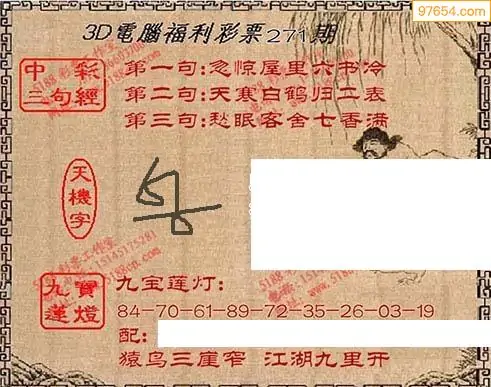 97654.com
3D電腦福利彩票271期
中彩
三句經
第一句:忽惊屋里六书冷
第二句:天寒白鹤归二表
第三句:愁眠客舍七香满
天機字
九寶
蓮燈
九宝莲灯:
84-70-61-89-72-35-26-03-19
配:
猿鸟三崖窄 江湖九里开